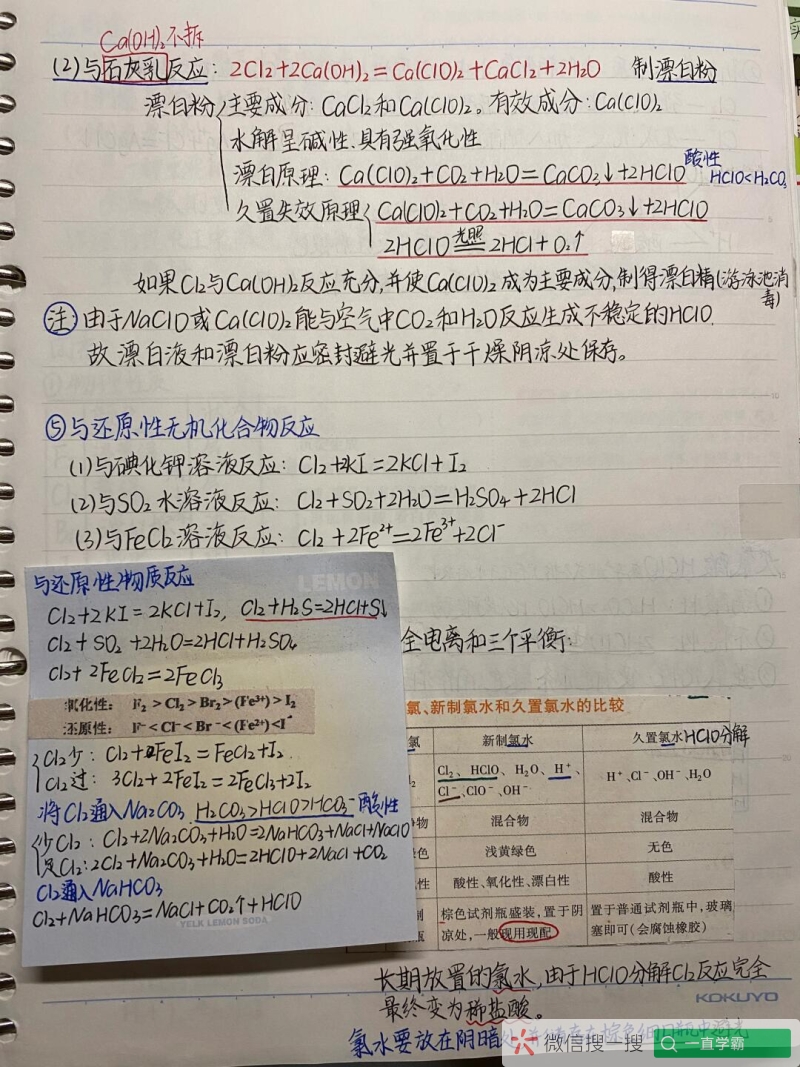 Ca(OH)₂不拆
(2)与石灰乳反应: 2Cl₂+2Ca(OH)₂=Ca(ClO)₂+CaCl₂+2H₂O 制漂白粉
漂白粉 主要成分: CaCl₂和Ca(ClO)₂。有效成分: Ca(ClO)₂
水解呈碱性、具有强氧化性
漂白原理: Ca(ClO)₂+CO₂+H₂O=CaCO₃↓+2HClO 酸性 HClO<H₂CO₃
久置失效原理 Ca(ClO)₂+CO₂+H₂O=CaCO₃↓+2HClO
2HClO 光照 2HCl+O₂↑
如果Cl₂与Ca(OH)₂反应充分,并使Ca(ClO)₂成为主要成分,制得漂白精(游泳池消毒)
注: 由于NaClO或Ca(ClO)₂能与空气中CO₂和H₂O反应生成不稳定的HClO.
故漂白液和漂白粉应密封避光并置于干燥阴凉处保存。
⑤与还原性无机化合物反应
(1)与碘化钾溶液反应: Cl₂+2KI=2KCl+I₂
(2)与SO₂水溶液反应: Cl₂+SO₂+2H₂O=H₂SO₄+2HCl
(3)与FeCl₂溶液反应: Cl₂+2Fe²⁺=2Fe³⁺+2Cl⁻
LEMON
与还原性物质反应
Cl₂+2KI=2KCl+I₂, Cl₂+H₂S=2HCl+S↓
Cl₂+SO₂+2H₂O=2HCl+H₂SO₄
Cl₂+2FeCl₂=2FeCl₃
氧化性: F₂>Cl₂>Br₂>(Fe³⁺)>I₂
还原性: F⁻<Cl⁻<Br⁻<(Fe²⁺)<I⁻
Cl₂少: Cl₂+FeI₂=FeCl₂+I₂
Cl₂过: 3Cl₂+2FeI₂=2FeCl₃+2I₂
将Cl₂通入Na₂CO₃ H₂CO₃>HClO>HCO₃⁻酸性
少Cl₂: Cl₂+2Na₂CO₃+H₂O=2NaHCO₃+NaCl+NaClO
足Cl₂: 2Cl₂+Na₂CO₃+H₂O=2HClO+2NaCl+CO₂
Cl₂通入NaHCO₃
Cl₂+NaHCO₃=NaCl+CO₂↑+HClO
YELK LEMON SODA
全电离和三个平衡:
氯、新制氯水和久置氯水的比较
氯 新制氯水 久置氯水 HClO分解
Cl₂、HClO、H₂O、H⁺、 H⁺、Cl⁻、OH⁻、H₂O
Cl⁻、ClO⁻、OH⁻
物 混合物 混合物
色 浅黄绿色 无色
性 酸性、氧化性、漂白性 酸性
棕色试剂瓶盛装,置于阴 置于普通试剂瓶中,玻璃
瓶 凉处,一般现用现配 塞即可(会腐蚀橡胶)
长期放置的氯水,由于HClO分解Cl₂反应完全
最终变为稀盐酸。
KOKUYO
氯水要放在阴暗处
微信搜一搜 一直学霸